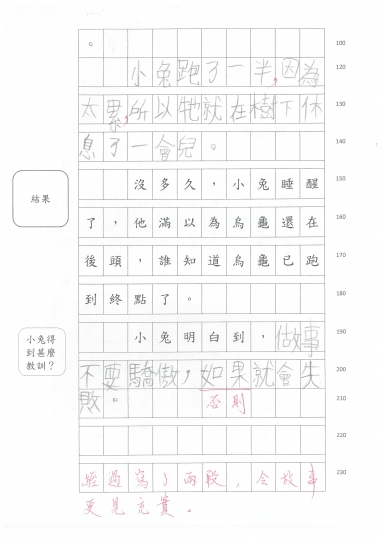 。
100
小兔跑了一半,因為
120
太累,所以牠就在樹下休
130
息了一會兒。
140
結果
沒多久,小兔睡醒
150
了,他滿以為烏龜還在
160
後頭,誰知道烏龜已跑
170
到終點了。
180
小兔得
到甚麼
教訓?
小兔明白到,做故事
190
不要驕傲,如果就會失
200
敗。
否則
210
220
經過寫了兩段,令故事
230
更見充實。